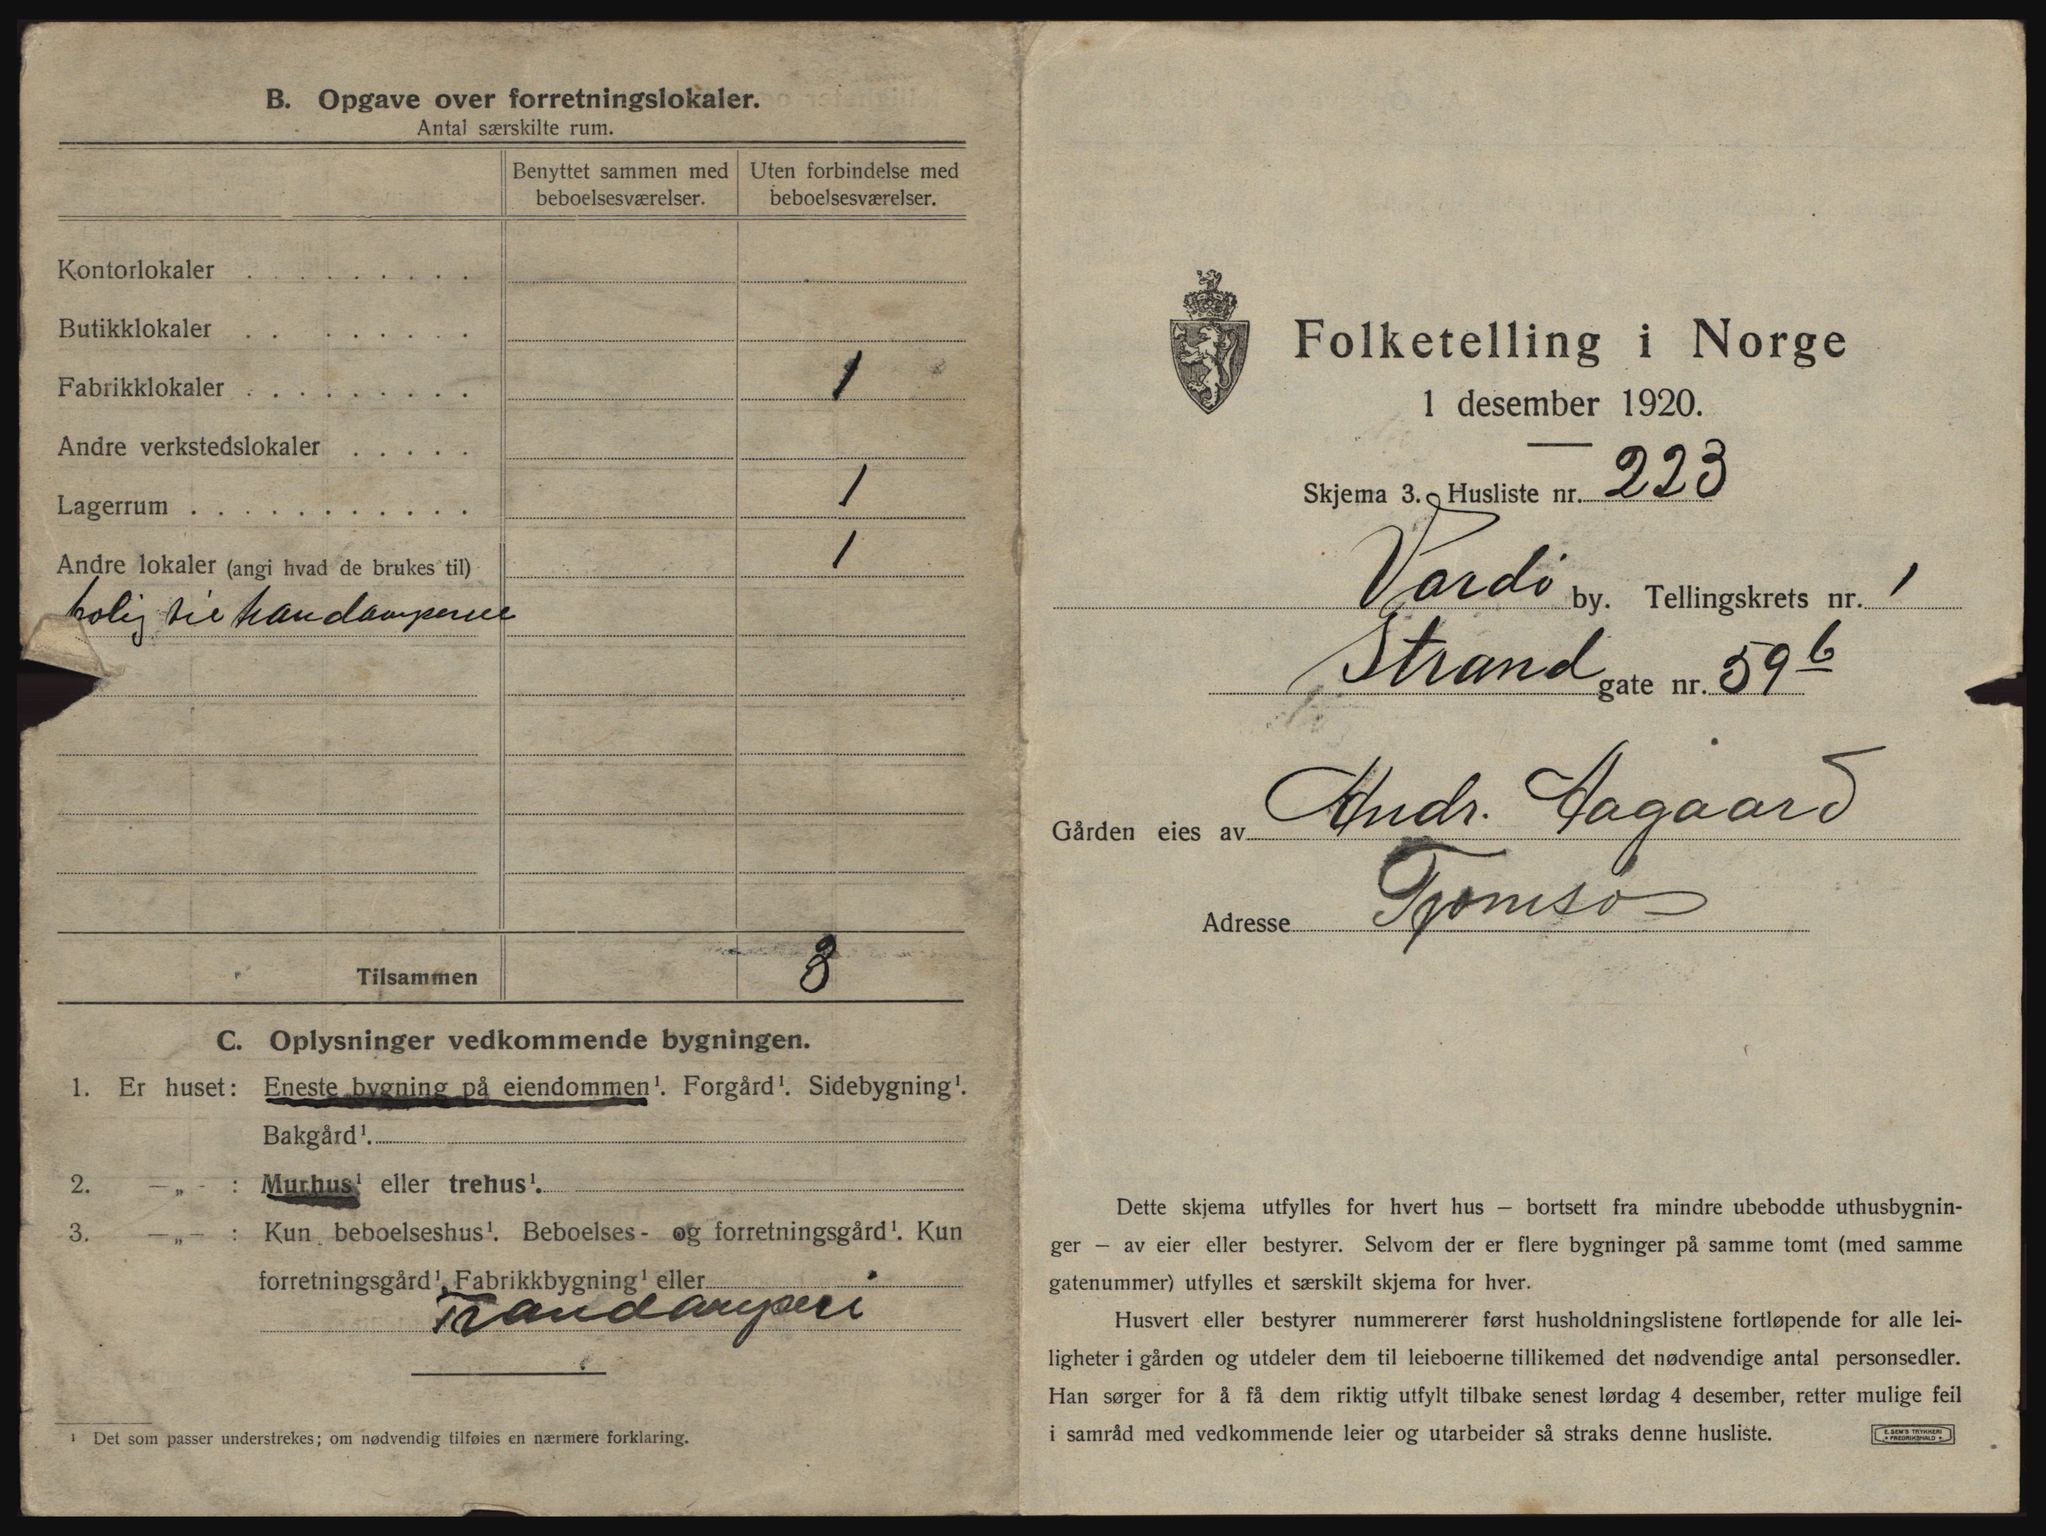 B. Opgave over forretningslokaler.
Antal særskilte rum.
Benyttet sammen med beboelsesværelser.
Uten forbindelse med beboelsesværelser.
Kontorlokaler . . . . . . . . .
Butikklokaler . . . . . . . .
Fabrikklokaler . . . . . . . . . 1
Andre verkstedslokaler . . . . .
Lagerrum . . . . . . . . . . . . 1
Andre lokaler (angi hvad de brukes til) 1
bolig til trandamperne
Tilsammen 3
C. Oplysninger vedkommende bygningen.
1. Er huset: Eneste bygning på eiendommen¹. Forgård¹. Sidebygning¹.
Bakgård¹.
2. —„— : Murhus¹ eller trehus¹.
3. —„— : Kun beboelseshus¹. Beboelses- og forretningsgård¹. Kun
forretningsgård¹. Fabrikkbygning¹ eller
Trandamperi
¹ Det som passer understrekes; om nødvendig tilføies en nærmere forklaring.
Folketelling i Norge
1 desember 1920.
Skjema 3. Husliste nr. 223
Vardö by. Tellingskrets nr. 1
Strand gate nr. 59 b
Gården eies av Andr. Aagaard
Adresse Tromsø
Dette skjema utfylles for hvert hus — bortsett fra mindre ubebodde uthusbygnin-
ger — av eier eller bestyrer. Selvom der er flere bygninger på samme tomt (med samme
gatenummer) utfylles et særskilt skjema for hver.
Husvert eller bestyrer nummererer først husholdningslistene fortløpende for alle lei-
ligheter i gården og utdeler dem til leieboerne tillikemed det nødvendige antal personsedler.
Han sørger for å få dem riktig utfylt tilbake senest lørdag 4 desember, retter mulige feil
i samråd med vedkommende leier og utarbeider så straks denne husliste.
E. SEM'S TRYKKERI
FREDRIKSHALD